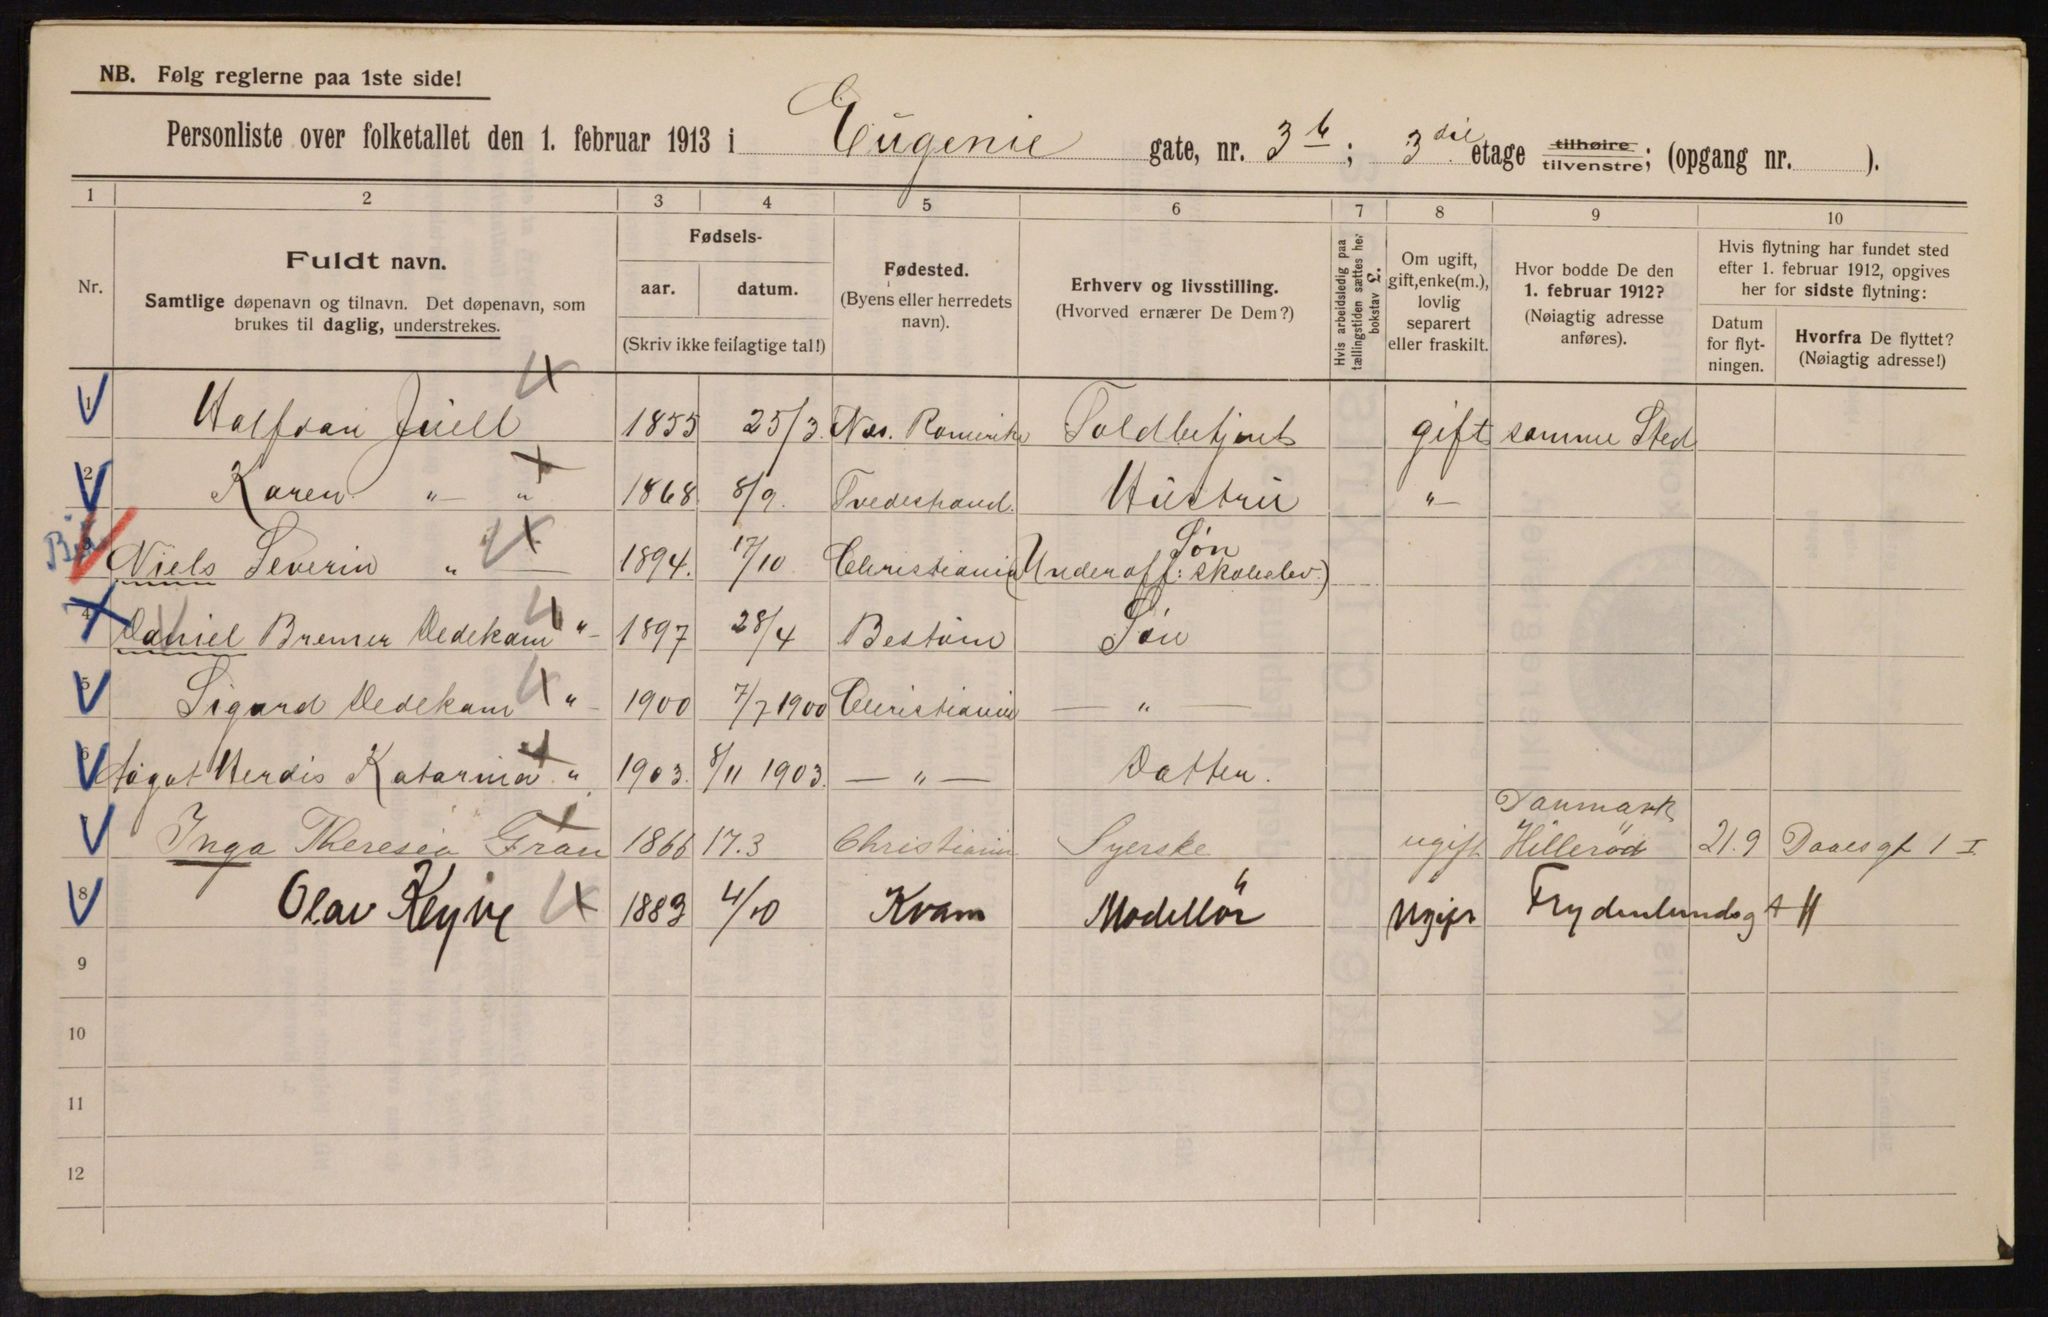 NB. Følg reglerne paa 1ste side!
Personliste over folketallet den 1. februar 1913 i Eugenie gate, nr. 3 b; 3die etage tilhøire tilvenstre; (opgang nr. ).
1 2 3 4 5 6 7 8 9 10
Nr.
Fuldt navn.
Samtlige døpenavn og tilnavn. Det døpenavn, som
brukes til daglig, understrekes.
Fødsels-
aar. datum.
(Skriv ikke feilagtige tal!)
Fødested.
(Byens eller herredets
navn).
Erhverv og livsstilling.
(Hvorved ernærer De Dem?)
Hvis arbeidsledig paa
tællingstiden sættes her
bokstav L.
Om ugift,
gift, enke(m.),
lovlig
separert
eller fraskilt.
Hvor bodde De den
1. februar 1912?
(Nøiagtig adresse
anføres).
Hvis flytning har fundet sted
efter 1. februar 1912, opgives
her for sidste flytning:
Datum
for flyt-
ningen.
Hvorfra De flyttet?
(Nøiagtig adresse!)
1 Halfdan Juell 1855 25/3 Nes. Romerike Toldbetjent gift samme Sted
2 Karen " " 1868 8/9 Tvedestrand. Hustru "
3 Niels Severin " 1894. 17/10 Christiania Søn
(Underoff: skoleelev.)
4 Daniel Bremer Vedekam " 1897 28/4 Bestum Søn
5 Sigurd Vedekam " 1900 7/7 1900 Christiania — " —
6 Aagot Herdis Katarina " 1903. 8/11 1903. — " — Datter.
Inga Theresia Gran 1866 17.3 Christiania Syerske ugift Danmark
Hillerød 21.9 Daaesgt 1 I
8 Olav Røyve 1883 4/10 Kvam Modellør Ugift Frydenlundsgt 11
9
10
11
12